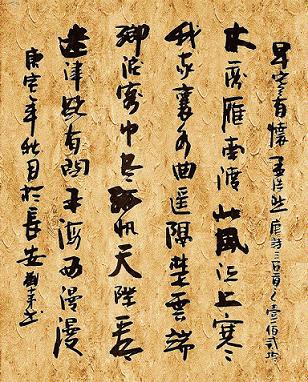 早寒有懷 孟浩然 唐詩三百首之壹佰貳
木落雁南渡北風江上寒
我家襄水曲遥隔楚雲端
鄉淚客中尽孤帆天際看
迷津欲有問平海夕漫漫
庚寅年秋月於長安 書